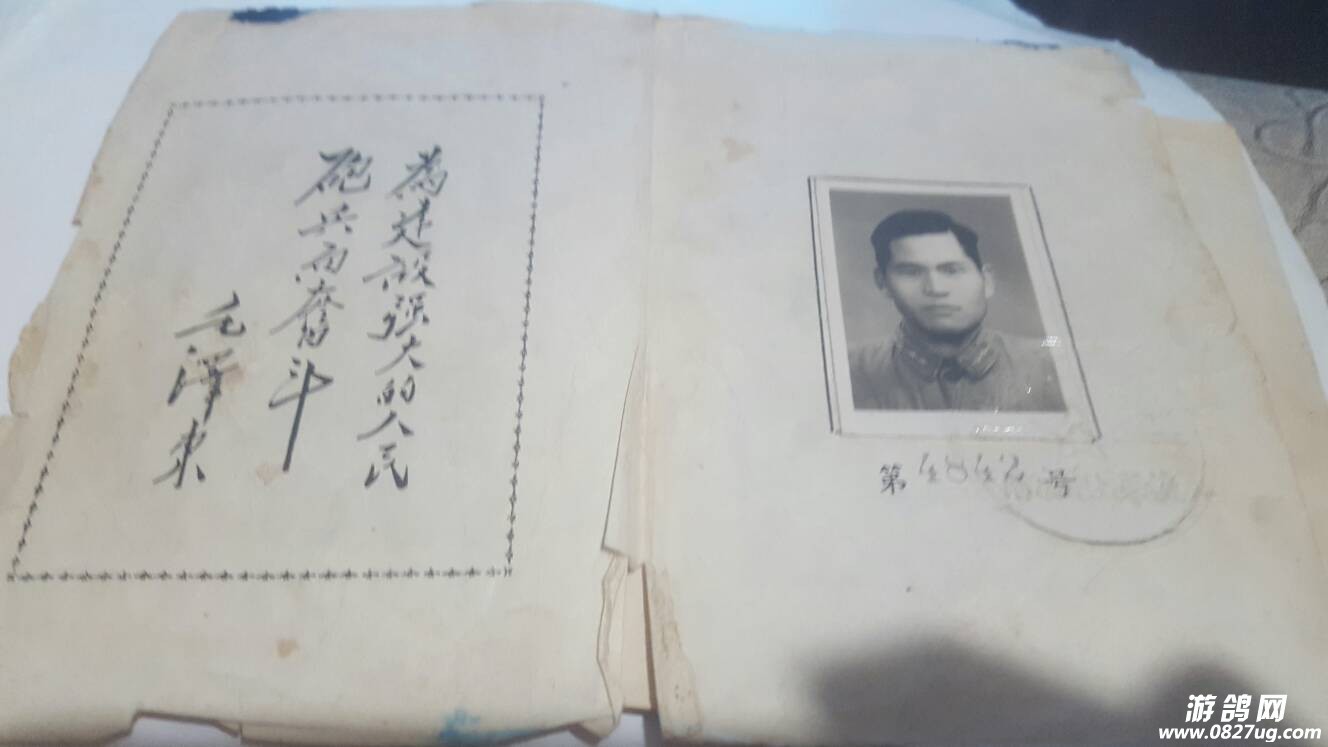 為建設强大的人民
砲兵而奮斗
毛澤东
第4842号
游鸽网
www.0827ug.com